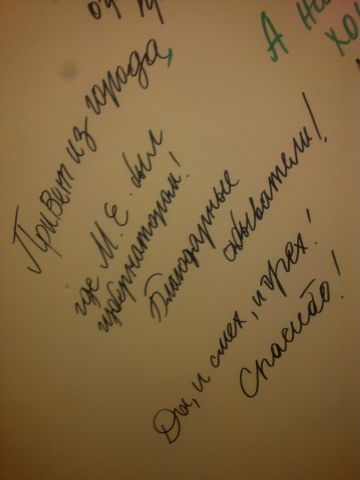 Привет из города,
где М. Е. был
губернатором!
Благодарные
обыватели!
Да, и смех, и грех!
Спасибо!
А на
хо